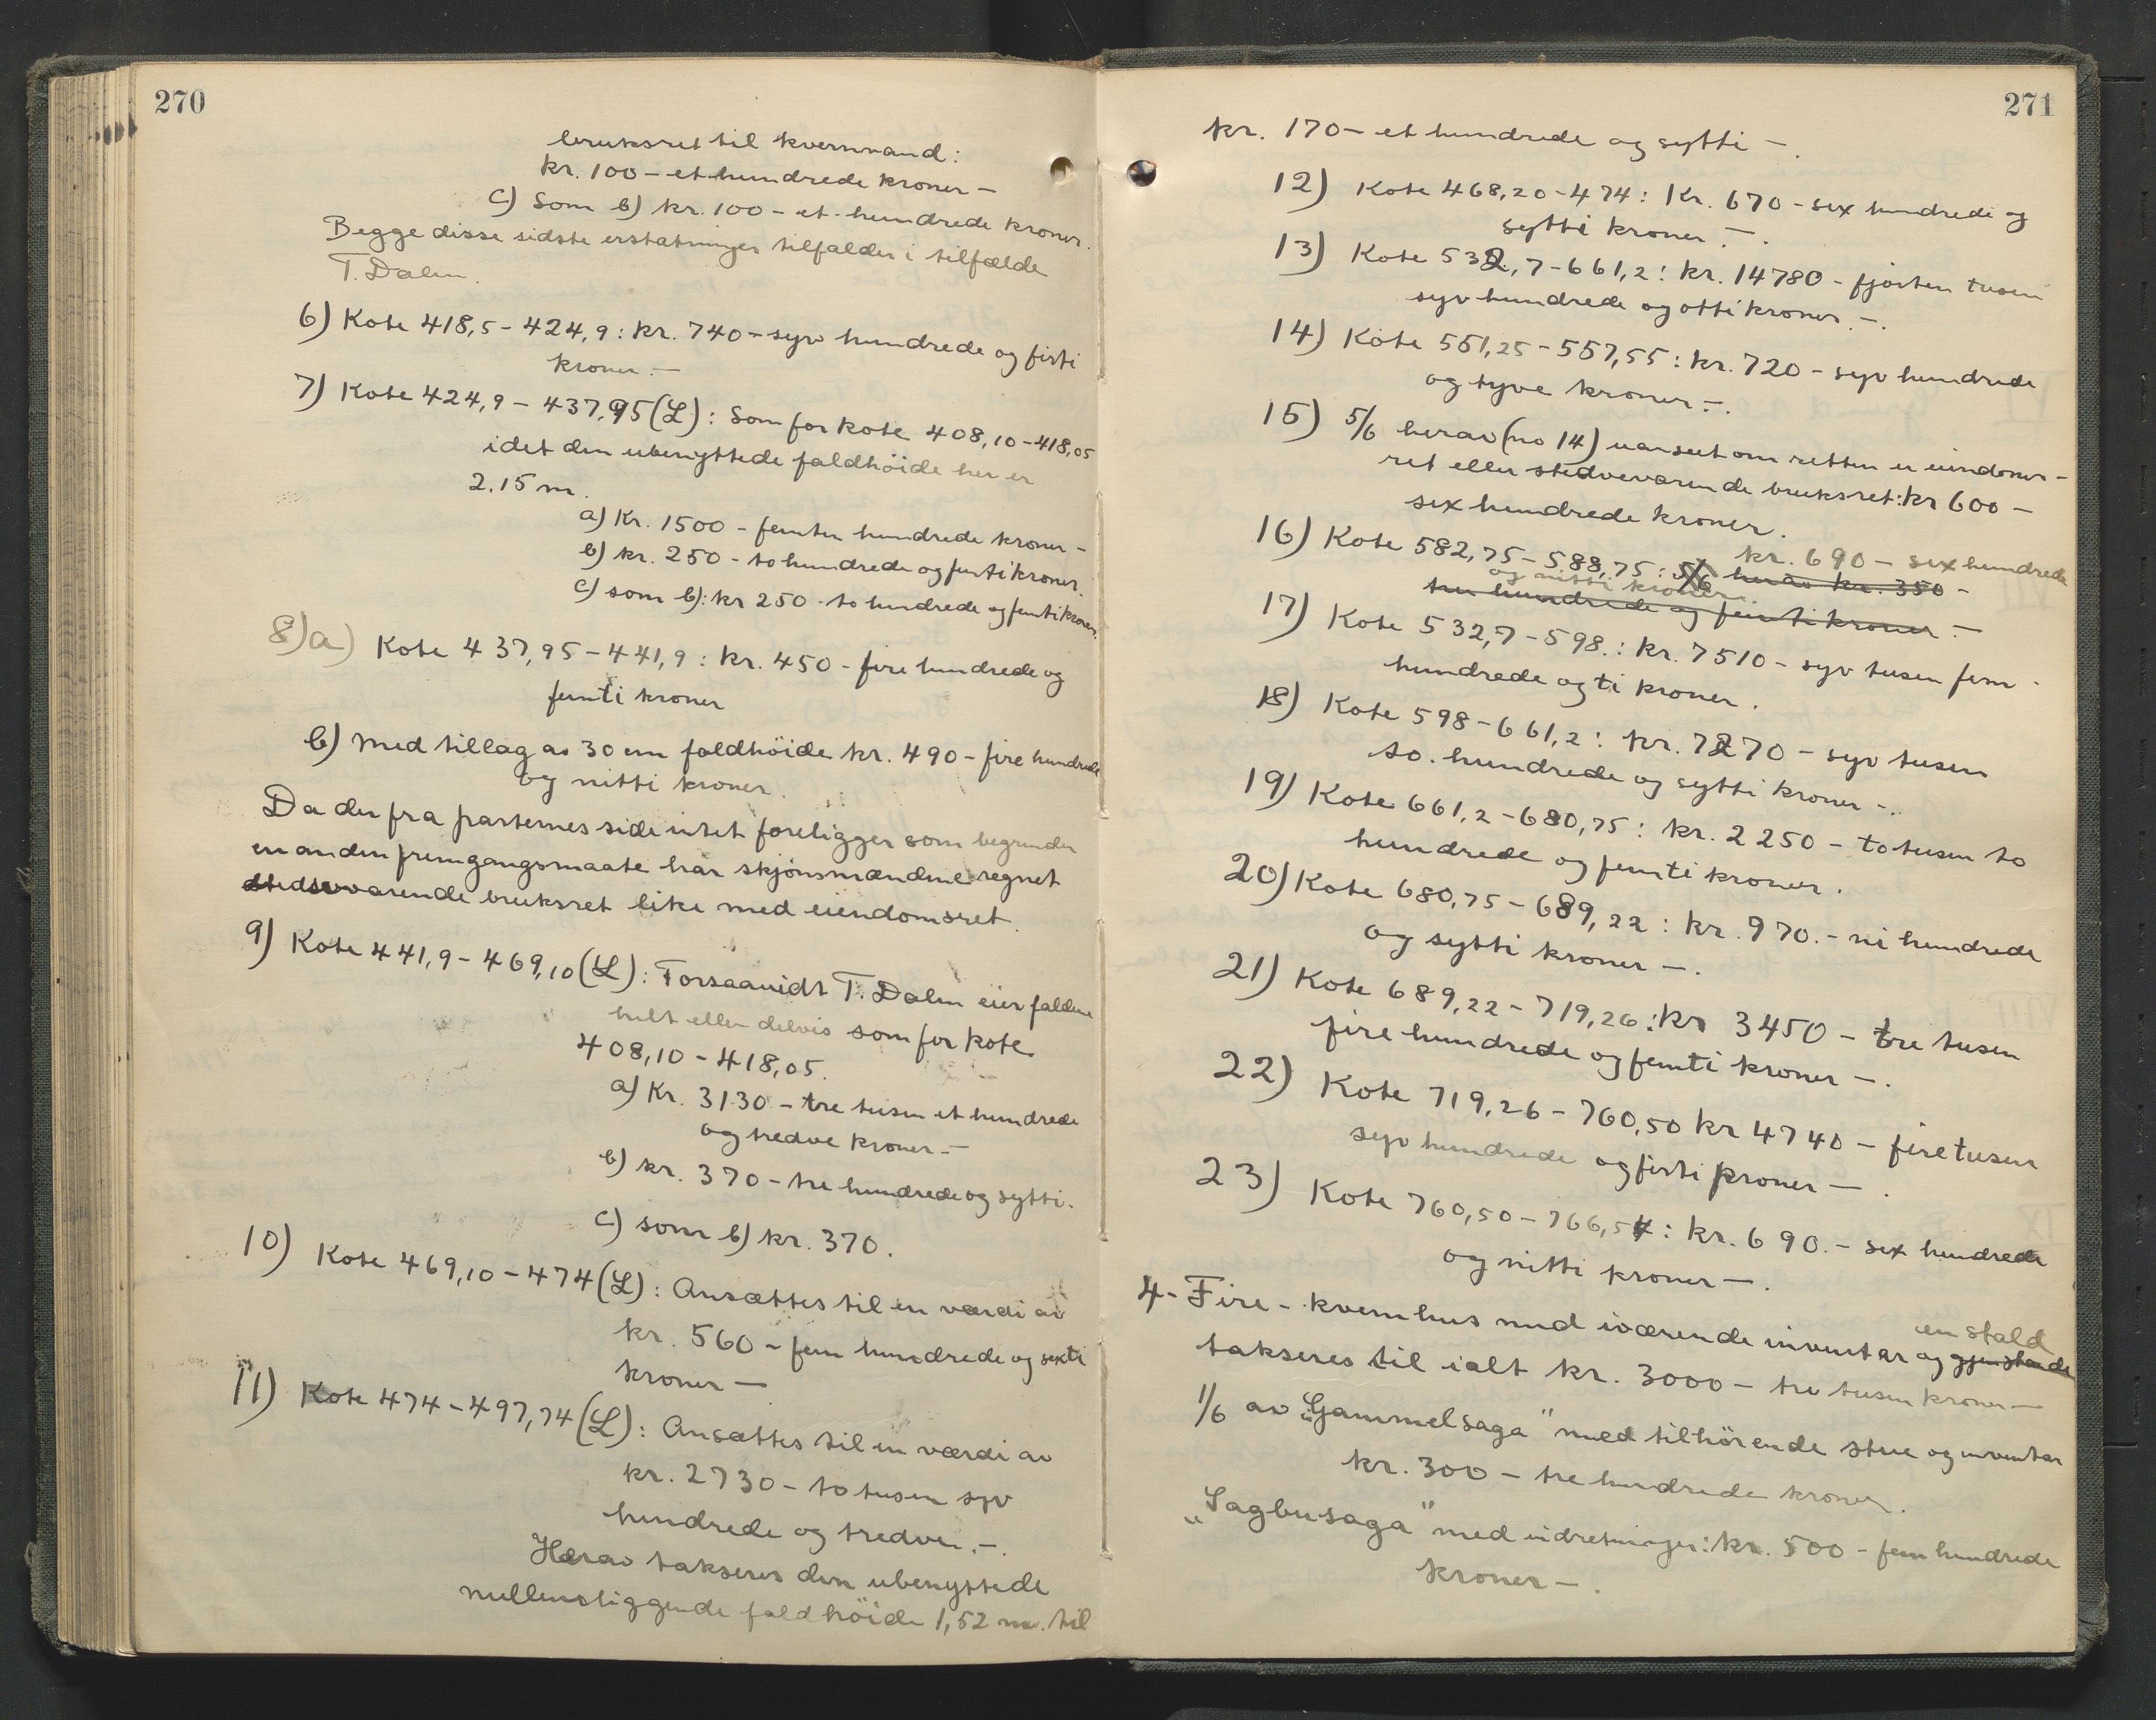 270
bruksret til kvernvand:
kr. 100 - et hundrede kroner -
c) Som b) kr. 100 - et hundrede kroner.
Begge disse sidste erstatninger tilfalder i tilfælde
T. Dalen.
6) Kote 418,5 - 424,9: kr. 740 - syv hundrede og firti
kroner. -
7) Kote 424,9 - 437,95 (L): Som for kote 408,10 - 418,05
idet den ubenyttede faldhöide her er
2.15 m.
a) Kr. 1500 - femten hundrede kroner -
b) kr. 250 - to hundrede og femti kroner.
c) som b): kr 250 - to hundrede og femti kroner.
8) a) Kote 437,95 - 441,9: kr. 450 - fire hundrede og
femti kroner
b) Med tillæg av 30 cm faldhöide kr. 490 - fire hundrede
og nitti kroner.
Da der fra parternes side intet foreligger som begrunder
en anden fremgangsmaate har skjönsmændene regnet
stedsevarende bruksret like med eiendomsret.
9) Kote 441,9 - 469,10 (L): Forsaavidt T. Dalen eier faldene
helt eller delvis som for kote
408,10 - 418,05.
a) Kr. 3130 - tre tusen et hundrede
og tredve kroner -
b) kr. 370 - tre hundrede og sytti.
c) som b) kr. 370.
10) Kote 469,10 - 474 (L): Ansættes til en værdi av
kr. 560 - fem hundrede og sexti
kroner -
11) Kote 474 - 497,74 (L): Ansættes til en værdi av
kr. 2730 - to tusen syv
hundrede og tredve. -.
Herav takseres den ubenyttede
mellemliggende faldhöide 1,52 m. til
271
kr. 170 - et hundrede og sytti -.
12) Kote 468,20 - 474: Kr. 670 - sex hundrede og
sytti kroner. -.
13) Kote 532,7 - 661,2: kr. 14780 - fjorten tusen
syv hundrede og otti kroner. -.
14) Kote 551,25 - 557,55: kr. 720 - syv hundrede
og tyve kroner. -.
15) 5/6 herav (no 14) uanseet om retten er eiendoms-
ret eller stedsevarende bruksret: kr 600 -
sex hundrede kroner.
16) Kote 582,75 - 588,75: 5/6 herav kr. 350 -
kr. 690 - sex hundrede
og nitti kroner.
tre hundrede og femti kroner -
17) Kote 532,7 - 598.: kr. 7510 - syv tusen fem
hundrede og ti kroner.
18) Kote 598 - 661,2: kr. 7270 - syv tusen
to hundrede og sytti kroner -.
19) Kote 661,2 - 680,75: kr. 2250 - to tusen to
hundrede og femti kroner.
20) Kote 680,75 - 689,22: kr. 970. - ni hundrede
og sytti kroner -.
21) Kote 689,22 - 719,26: kr 3450 - tre tusen
fire hundrede og femti kroner -.
22) Kote 719,26 - 760,50 kr 4740 - fire tusen
syv hundrede og firti kroner -.
23) Kote 760,50 - 766,54: kr. 690. - sex hundrede
og nitti kroner -.
en stald
4 - Fire - kvernhus med iværende inventar og gjenstande
takseres til ialt kr. 3000 - tre tusen kroner -
1/6 av "Gammelsaga" med tilhörende stue og inventar
kr. 300 - tre hundrede kroner.
"Sagbusaga" med indretninger: kr. 500 - fem hundrede
kroner -.